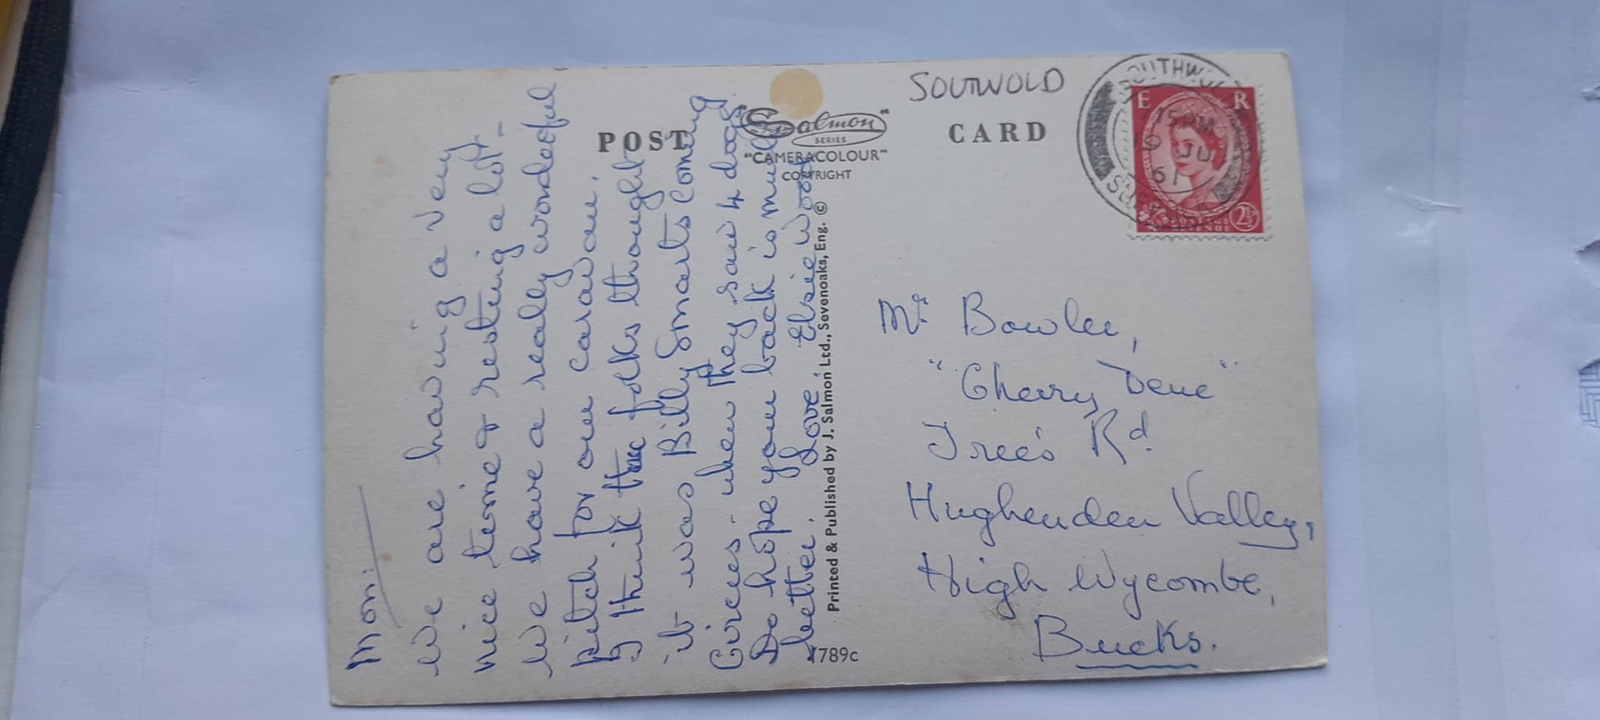 Mon:
We are having a very
nice time & resting a lot -
We have a really wonderful
pitch for our caravan.
I think the folks thought
it was Billy Smarts coming
Circus. when they saw 4 dogs
Do hope your back is much
better. Love. Elsie Wood
POST CARD
"Salmon"
SERIES
"CAMERACOLOUR"
COPYRIGHT
Printed & Published by J. Salmon Ltd., Sevenoaks, Eng. ©
4789c
SOUTWOLD
E R
JU
61
2½
Mr. Bowler,
"Cherry Dene"
Trees Rd.
Hughenden Valley,
High Wycombe,
Bucks.